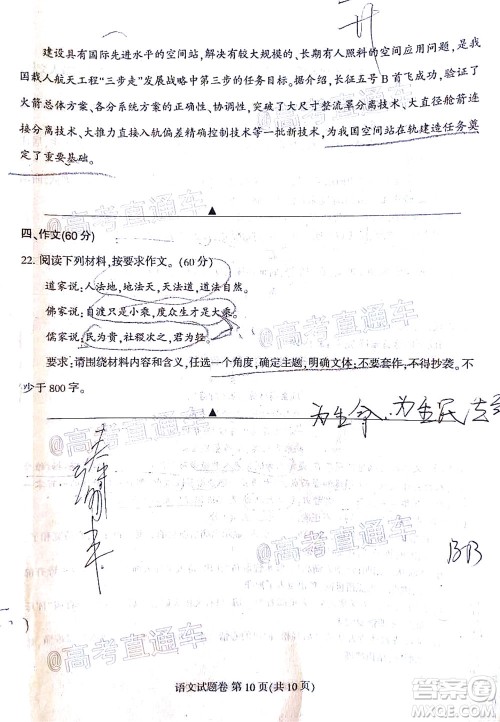 建设具有国际先进水平的空间站,解决有较大规模的、长期有人照料的空间应用问题,是我
国载人航天工程“三步走”发展战略中第三步的任务目标。据介绍,长征五号 B 首飞成功,验证了
火箭总体方案、各分系统方案的正确性、协调性,突破大尺寸整流罩分离技术、大直径舱箭连
接分离技术、大推力直接入轨偏差精确控制技术等一批新技术,为我国空间站在轨建造任务奠
定了重要基础。
四、作文(60 分)
22. 阅读下列材料,按要求作文。(60 分)
道家说:人法地,地法天,天法道,道法自然。
佛家说:自渡只是小乘,度众生才是大乘。
儒家说:民为贵,社稷次之,君为轻。
要求:请围绕材料内容和含义,任选一个角度,确定主题,明确文体;不要套作,不得抄袭。不
少于 800 字。
为生命 为生民
BB
语文试题卷 第 10 页(共 10 页)
@高考直通车
@高考直通车
@高考直通车
@高考直通车
@高考直通车